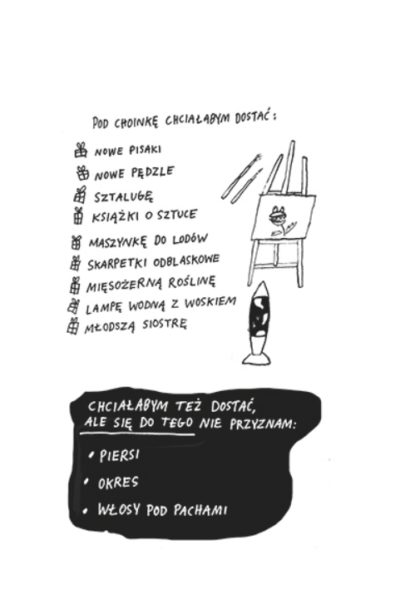 POD CHOINKĘ CHCIAŁABYM DOSTAĆ:
NOWE PISAKI
NOWE PĘDZLE
SZTALUGĘ
KSIĄŻKI O SZTUCE
MASZYNKĘ DO LODÓW
SKARPETKI ODBLASKOWE
MIĘSOŻERNĄ ROŚLINĘ
LAMPĘ WODNĄ Z WOSKIEM
MŁODSZĄ SIOSTRĘ
CHCIAŁABYM TEŻ DOSTAĆ,
ALE SIĘ DO TEGO NIE PRZYZNAM:
• PIERSI
• OKRES
• WŁOSY POD PACHAMI